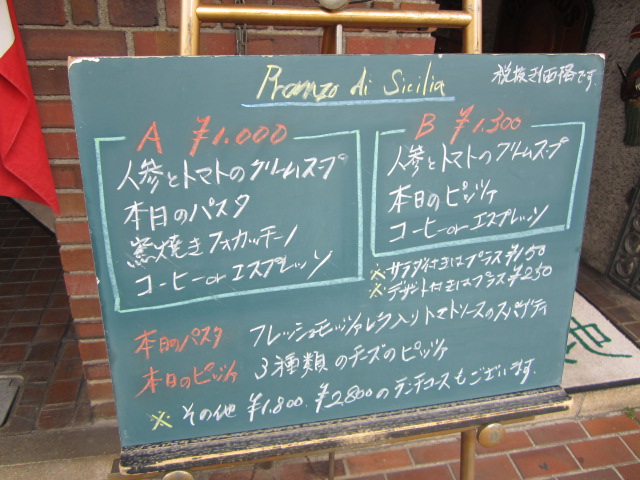 Pranzo di Sicilia
税抜き価格です.
A ¥1.000
人参とトマトのクリームスープ
本日のパスタ
窯焼きフォカッチーノ
コーヒー or エスプレッソ
B ¥1.300
人参とトマトのクリームスープ
本日のピッツァ
コーヒー or エスプレッソ
※サラダ付きはプラス¥150
※デザート付きはプラス¥250
本日のパスタ フレッシュモッツァレラ入りトマトソースのスパゲティ
本日のピッツァ 3種類のチーズのピッツァ
※ その他 ¥1.800. ¥2.800のランチコースもございます.